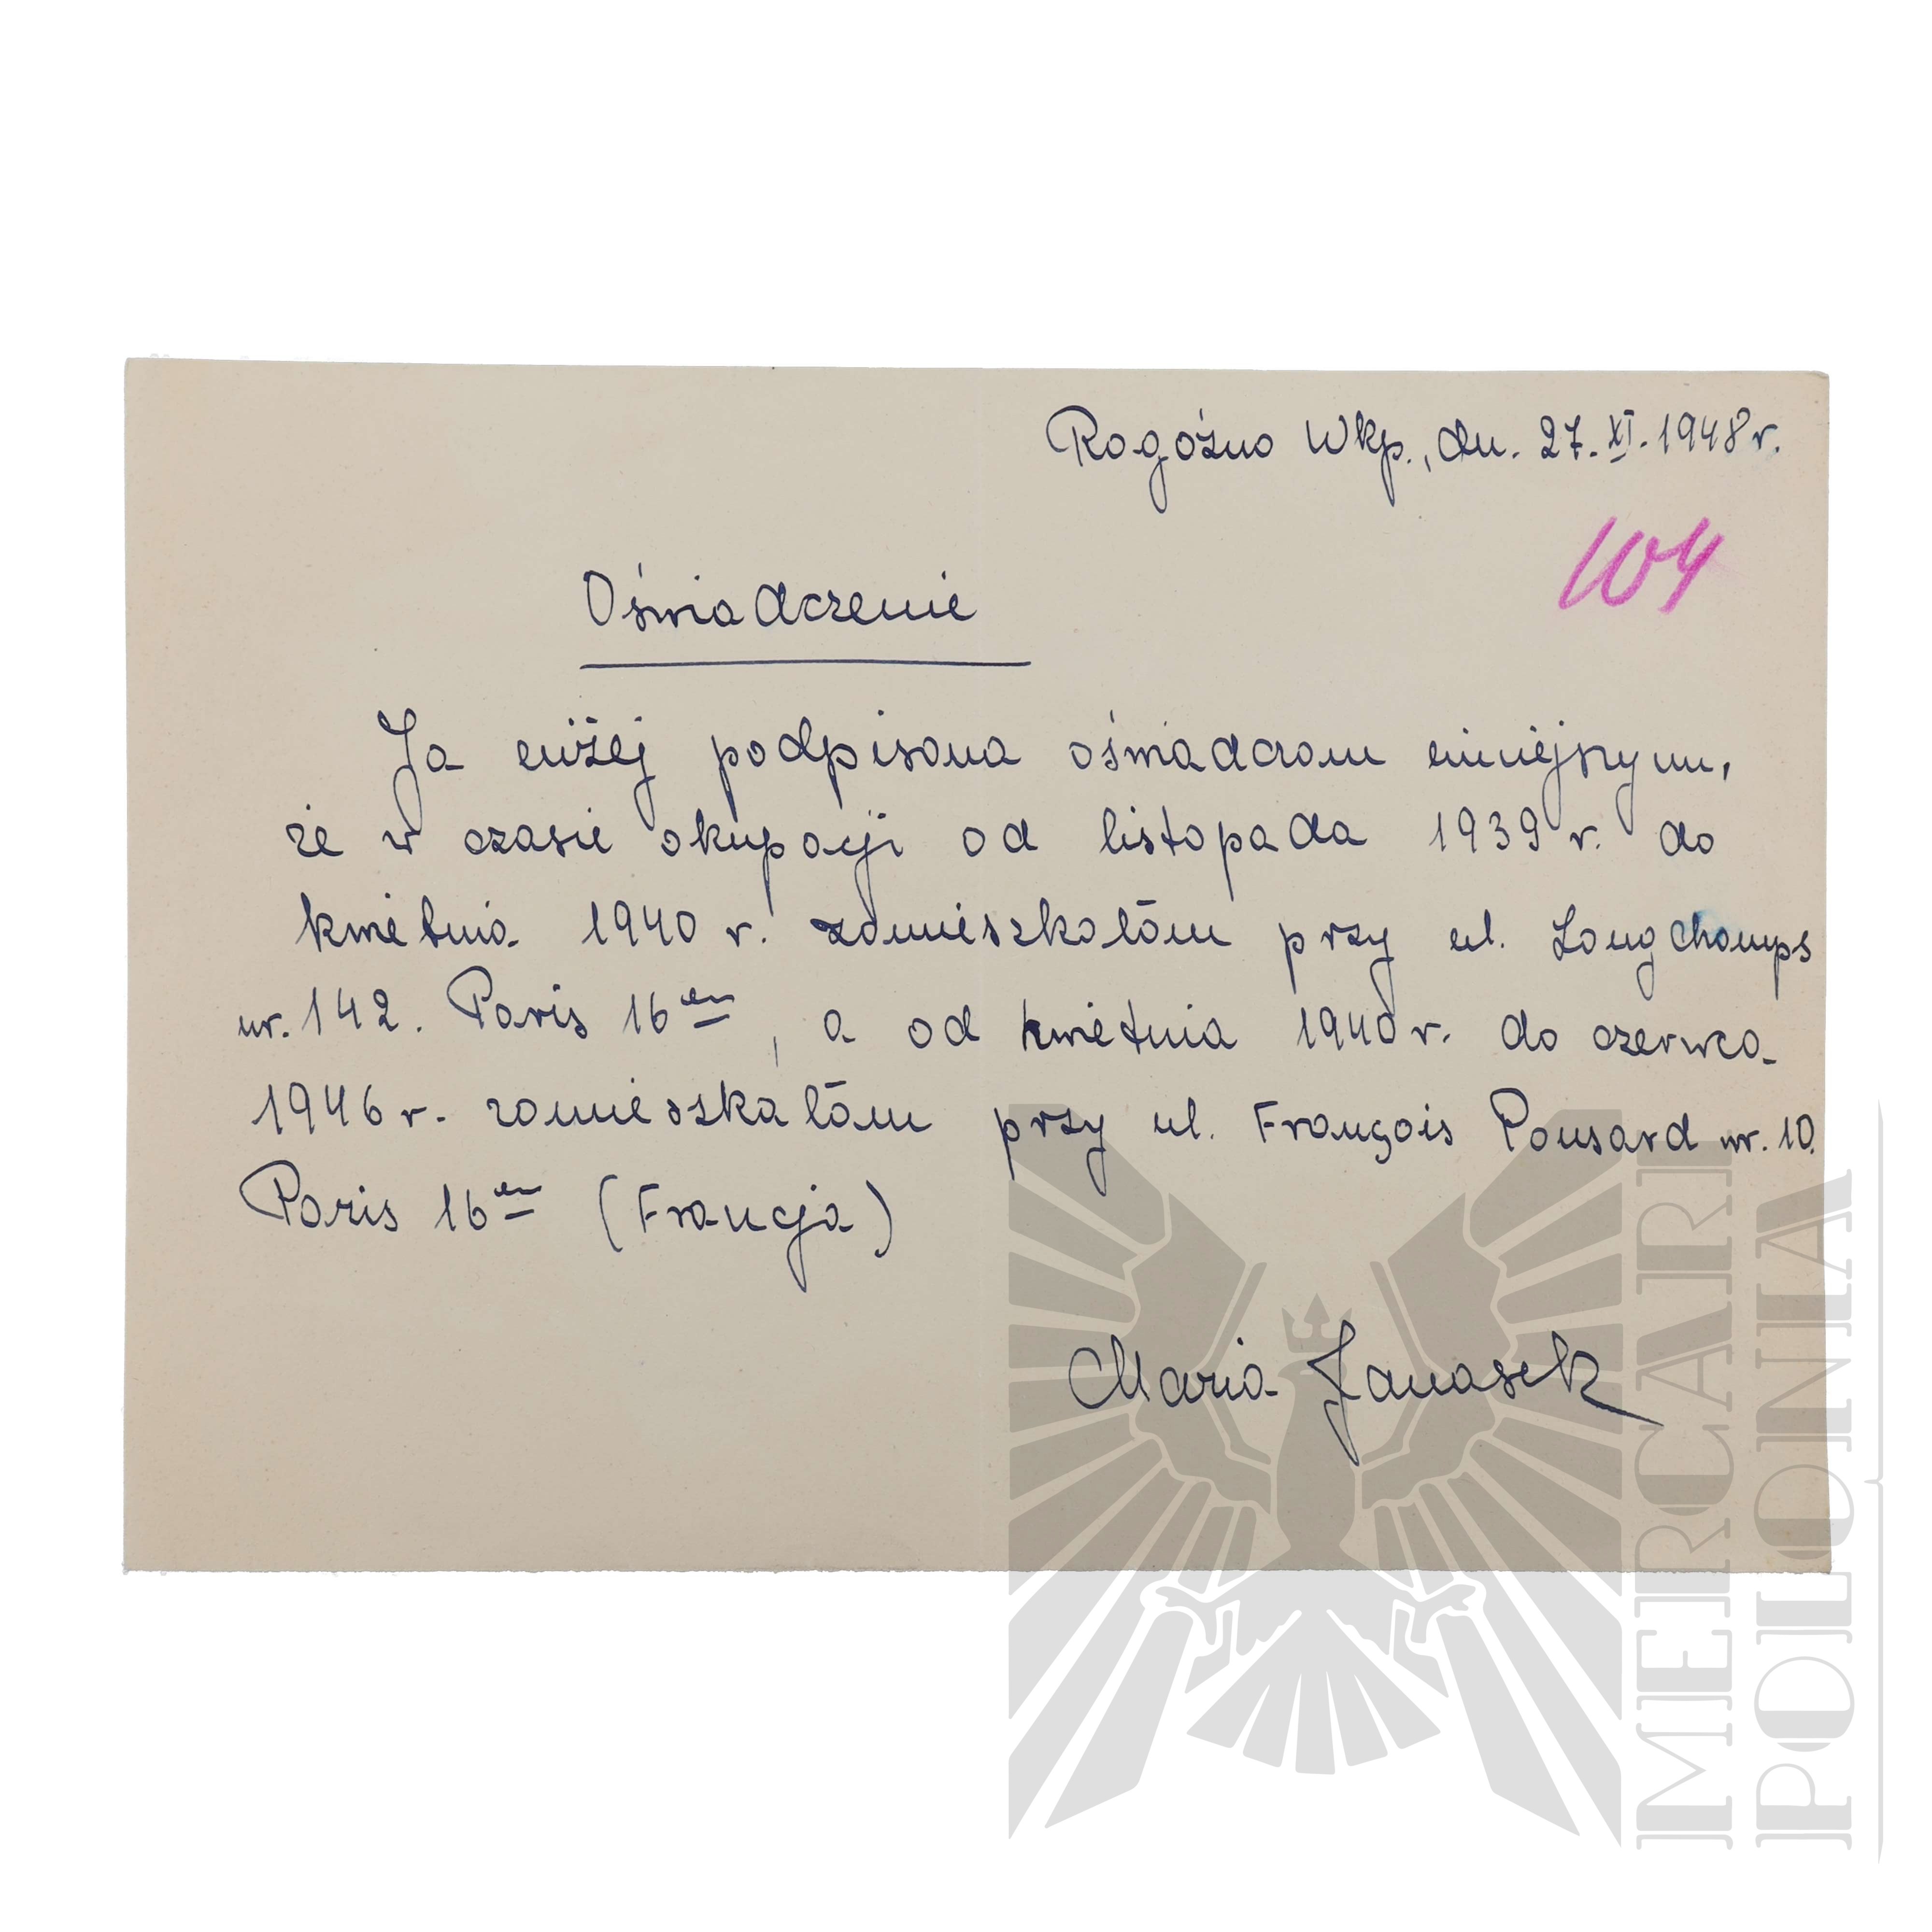 Rogoźno Wkp., dn. 27.XI.1948 r.
104
Oświadczenie
Ja niżej podpisana oświadczam niniejszym,
że w czasie okupacji od listopada 1939 r. do
kwietnia 1940 r. zamieszkałam przy ul. Longchamps
nr. 142. Paris 16em, a od kwietnia 1940 r. do czerwca
1946 r. zamieszkałam przy ul. François Ponsard nr. 10.
Paris 16em (Francja)
Maria Janasek
MERCARI
POLONIA